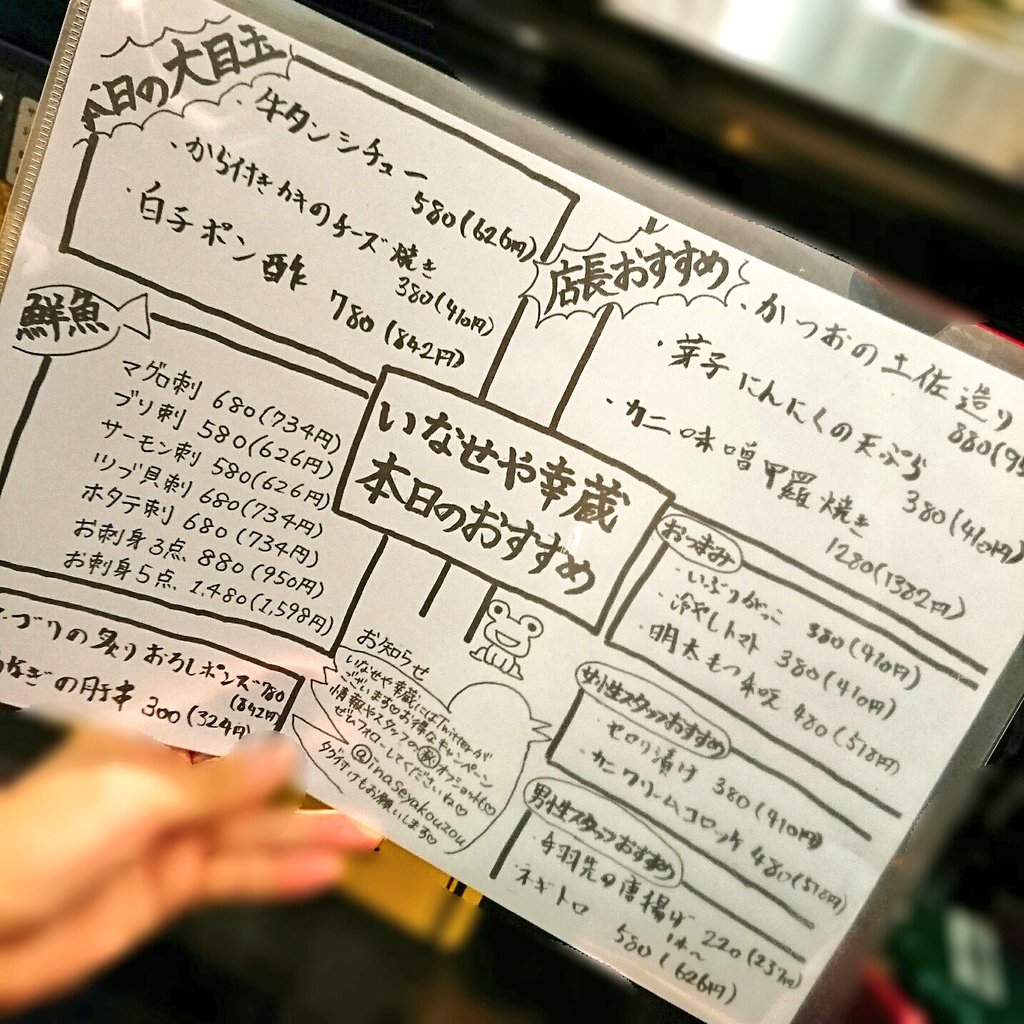 本日の大目玉
・牛タンシチュー
580(626円)
・から付きカキのチーズ焼き
380(410円)
・白子ポン酢
780(842円)
店長おすすめ
・かつおの土佐造り
880(95
・芽子にんにくの天ぷら
380(410円)
・カニ味噌甲羅焼き
1280(1382円)
鮮魚
マグロ刺 680(734円)
ブリ刺 580(626円)
サーモン刺 580(626円)
ツブ貝刺 680(734円)
ホタテ刺 680(734円)
お刺身3点 880(950円)
お刺身5点 1,480(1,598円)
いなせや幸蔵
本日のおすすめ
ぶりの炙りおろしポンズ 780
(842円)
なぎの肝串 300(324円)
お知らせ
いなせや幸蔵にはTwitterが
ございます♡お得なキャンペーン
情報やスタッフの㊙オフショットも♡
ぜひフォローしてくださいね♡
@inaseyakouzou
タグ付けもお願いします♡
おつまみ
・いぶりがっこ 380(410円)
・冷やしトマト 380(410円)
・明太もつ和え 480(518円)
女性スタッフおすすめ
・セロリ漬け 380(410円)
・カニクリームコロッケ 480(518円)
男性スタッフおすすめ
・手羽先の唐揚げ 220(237円)
1本〜
ネギトロ 580(626円)